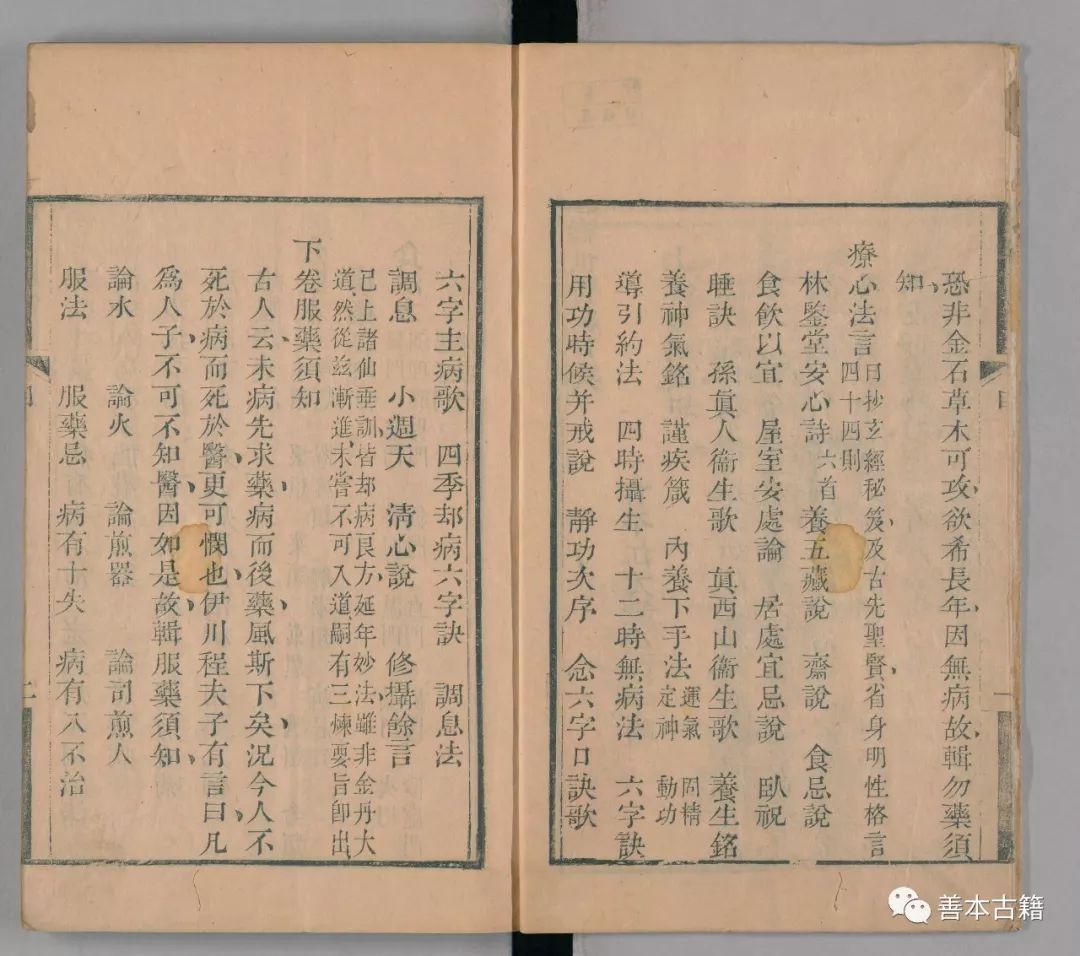 恐非金石草木可攻欲希長年因無病故輯勿藥須
知
療心法言 日抄玄經秘笈及古先聖賢省身明性格言
四十四則
林鑒堂安心詩 六首 養五藏說 齋說 食忌說
食飲以宜 屋室安處論 居處宜忌說 臥祝
睡訣 孫眞人衞生歌 眞西山衞生歌 養生銘
養神氣銘 謹疾箴 內養下手法 運氣 固精
定神 動功
導引約法 四時攝生 十二時無病法 六字訣
用功時候并戒說 靜功次序 念六字口訣歌
六字主病歌 四季却病六字訣 調息法
調息 小週天 淸心說 修攝餘言
已上諸仙垂訓皆却病良方延年妙法雖非金丹大
道然從茲漸進未嘗不可入道嗣有三煉要旨卽出
下卷服藥須知
古人云未病先求藥病而後藥風斯下矣況今人不
死於病而死於醫更可憫也伊川程夫子有言曰凡
爲人子不可不知醫因如是故輯服藥須知
論水 論火 論煎器 論司煎人
服法 服藥忌 病有十失 病有八不治
二
善本古籍